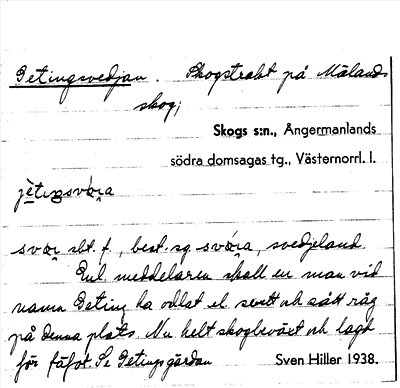 Getingsvedjan. Skogstrakt på Målands
skog;
Skogs s:n., Ångermanlands
södra domsagas tg., Västernorrl. l.
jètıŋsvó̱ṛa
svór sbt. f., best. sg. svóra, svedjeland.
Enl. meddelaren skall en man vid
namn Geting ha odlat el. svett och sått råg
på denna plats. Nu helt skogbeväxt och lagt
för fäfot. Se Getingsgärdan
Sven Hiller 1938.